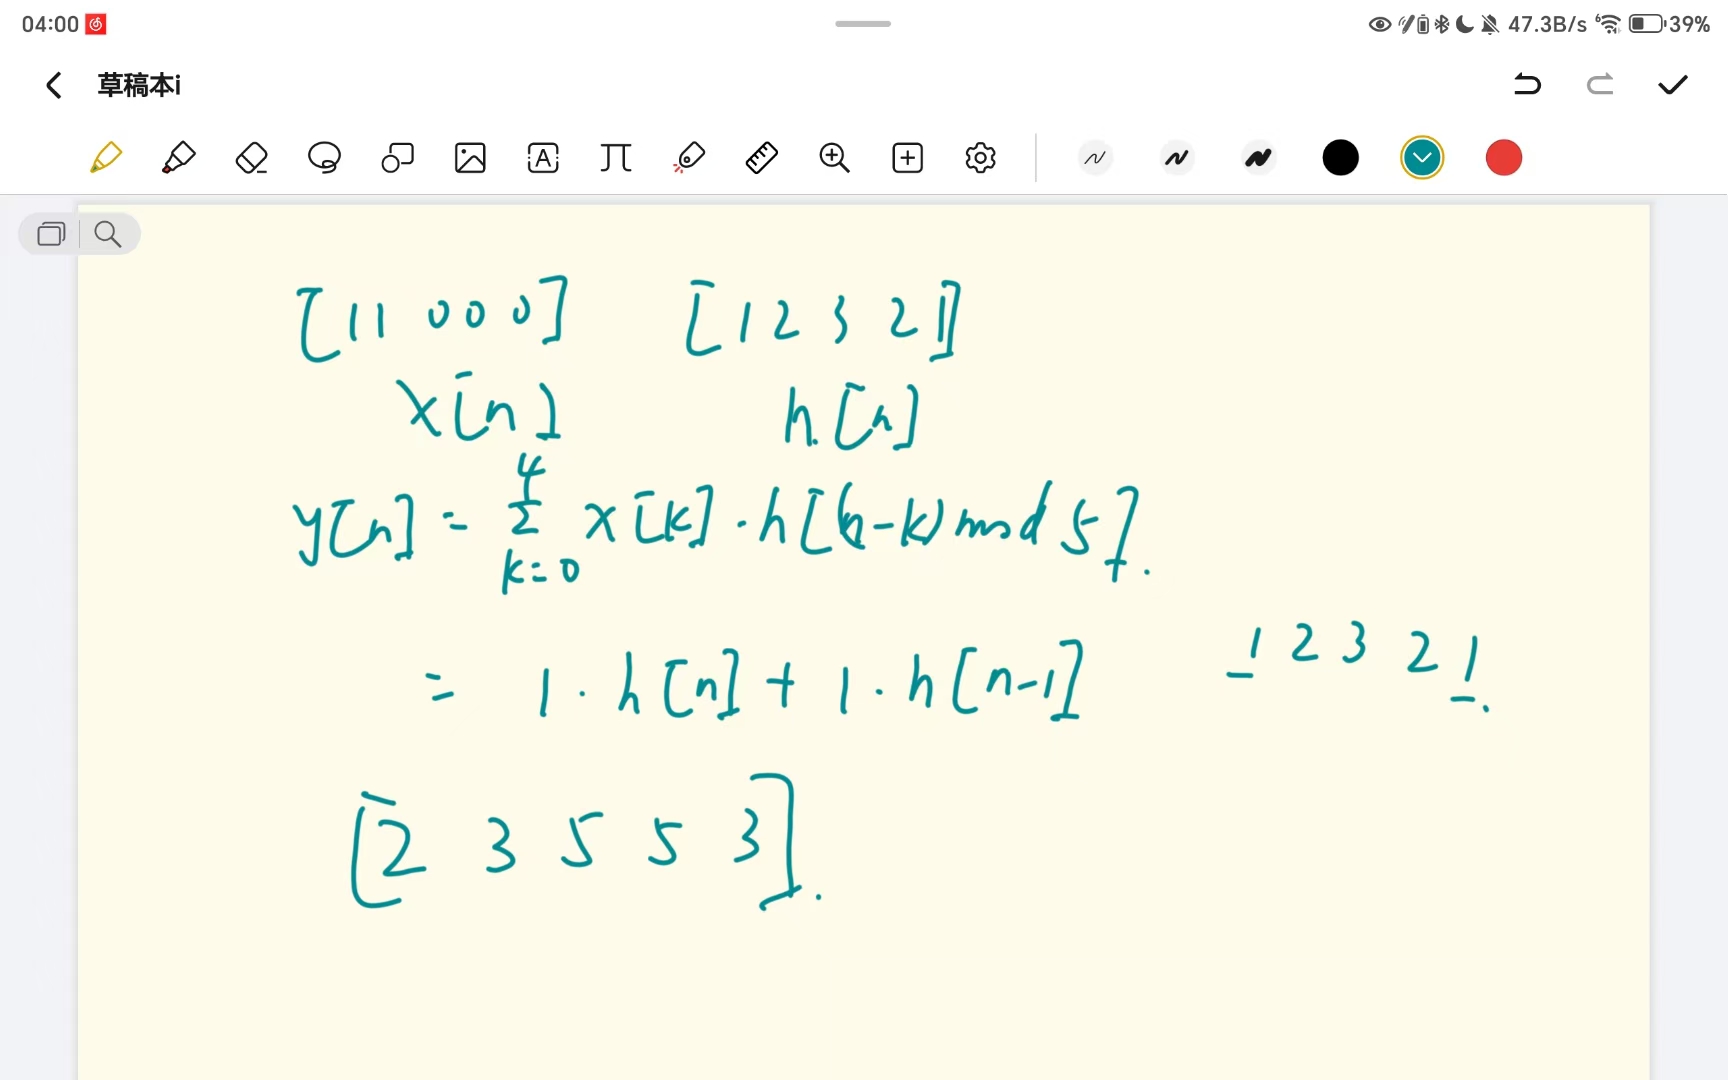 04:00 47.3B/s 6 39%
草稿本i
A
[1 1 0 0 0] [1 2 3 2 1]
x[n] h[n]
y[n] = 4 Σ k=0 x[k] · h[(n-k) mod 5].
= 1 · h[n] + 1 · h[n-1] 1 2 3 2 1.
[2 3 5 5 3].